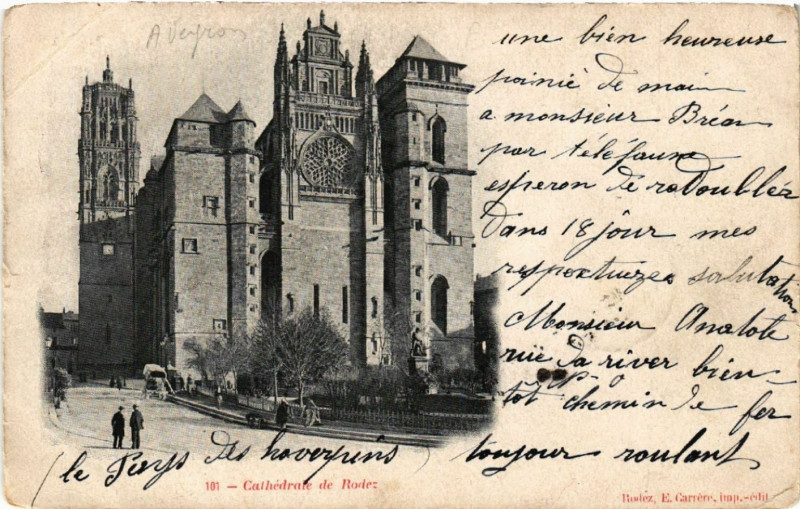 Aveyron
une bien heureuse
poinié de main
a monsieur Bréan
par téléfaune
esperon de redoubléz
Dans 18 jour mes
respextuizes salutations
Monsieur Anatote
rüe a river bien-
tôt chemin de fer
toujour roulant
(le Peiys des hoverpins)
101 — Cathédrale de Rodez
Rodez, E. Carrère, imp.-édit